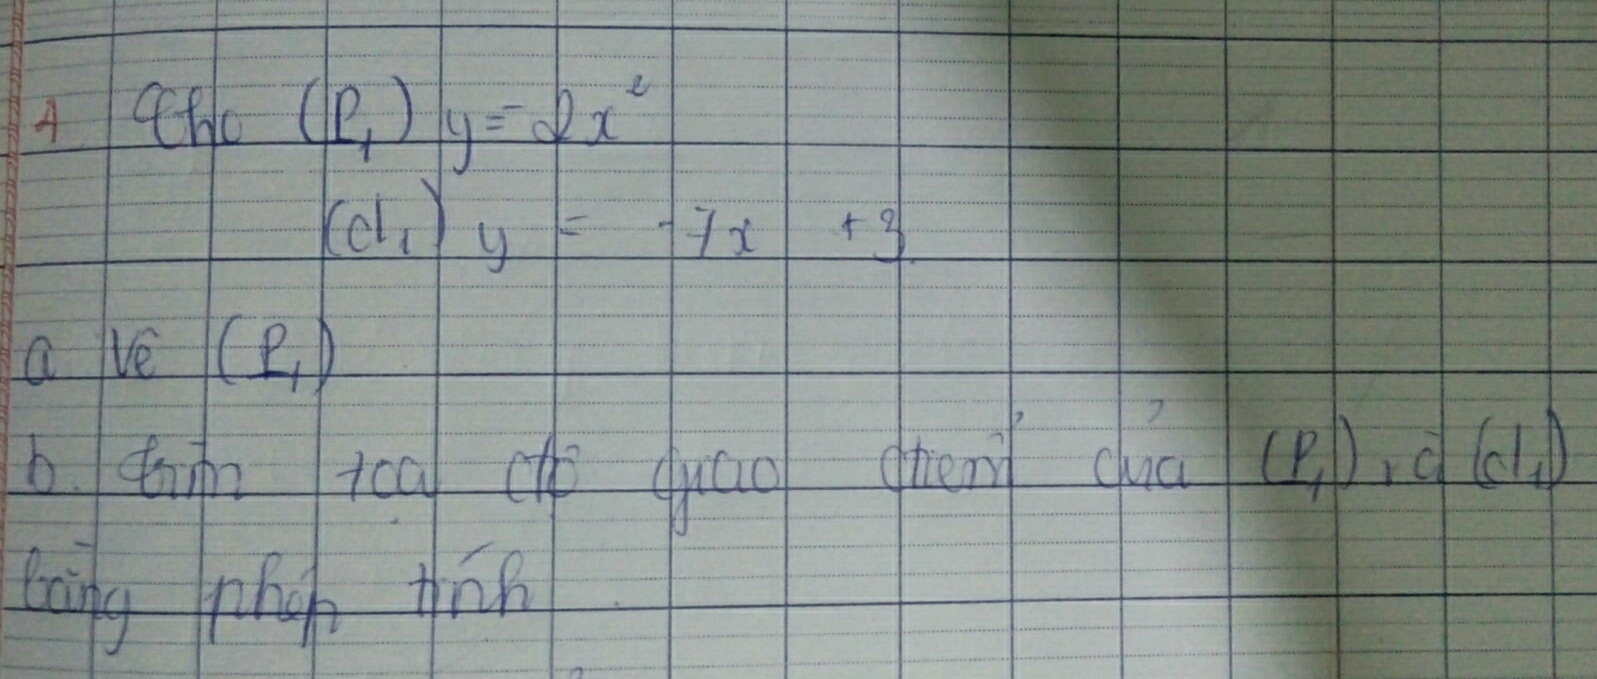 1 Cho (P₁) y = 2x²
(d₁) y = -7x + 3
a Vẽ (P₁)
b. tìm toạ độ giao điểm của (P₁) và (d₁)
bằng phép tính